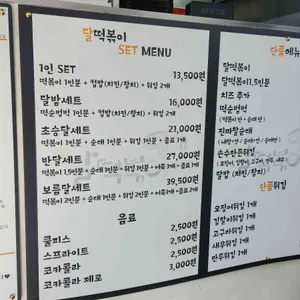 달떡볶이
SET MENU
1인 SET
13,500원
떡볶이 1인분 + 컵밥(치킨/참치) + 튀김 2개
달밤세트
16,000원
떡순범벅 1인분 + 컵밥(치킨/참치) + 튀김 2개
초승달세트
21,000원
떡볶이 1인분 + 순대 1인분 + 튀김 1인분 + 음료 1개
반달세트
27,000원
보름달세트
39,500원
음료
쿨피스
2,500원
스프라이트
2,500원
코카콜라
2,500원
코카콜라 제로
3,000원
단품메뉴
달떡볶이
달떡볶이1.5인분
치즈 추가
떡순범벅
진짜찰순대
손수만든튀김
달밥 (치킨/참치)
단품튀김
오징어튀김 1개
김말이튀김 1개
고구마튀김 1개
새우튀김 1개
만두튀김 1개